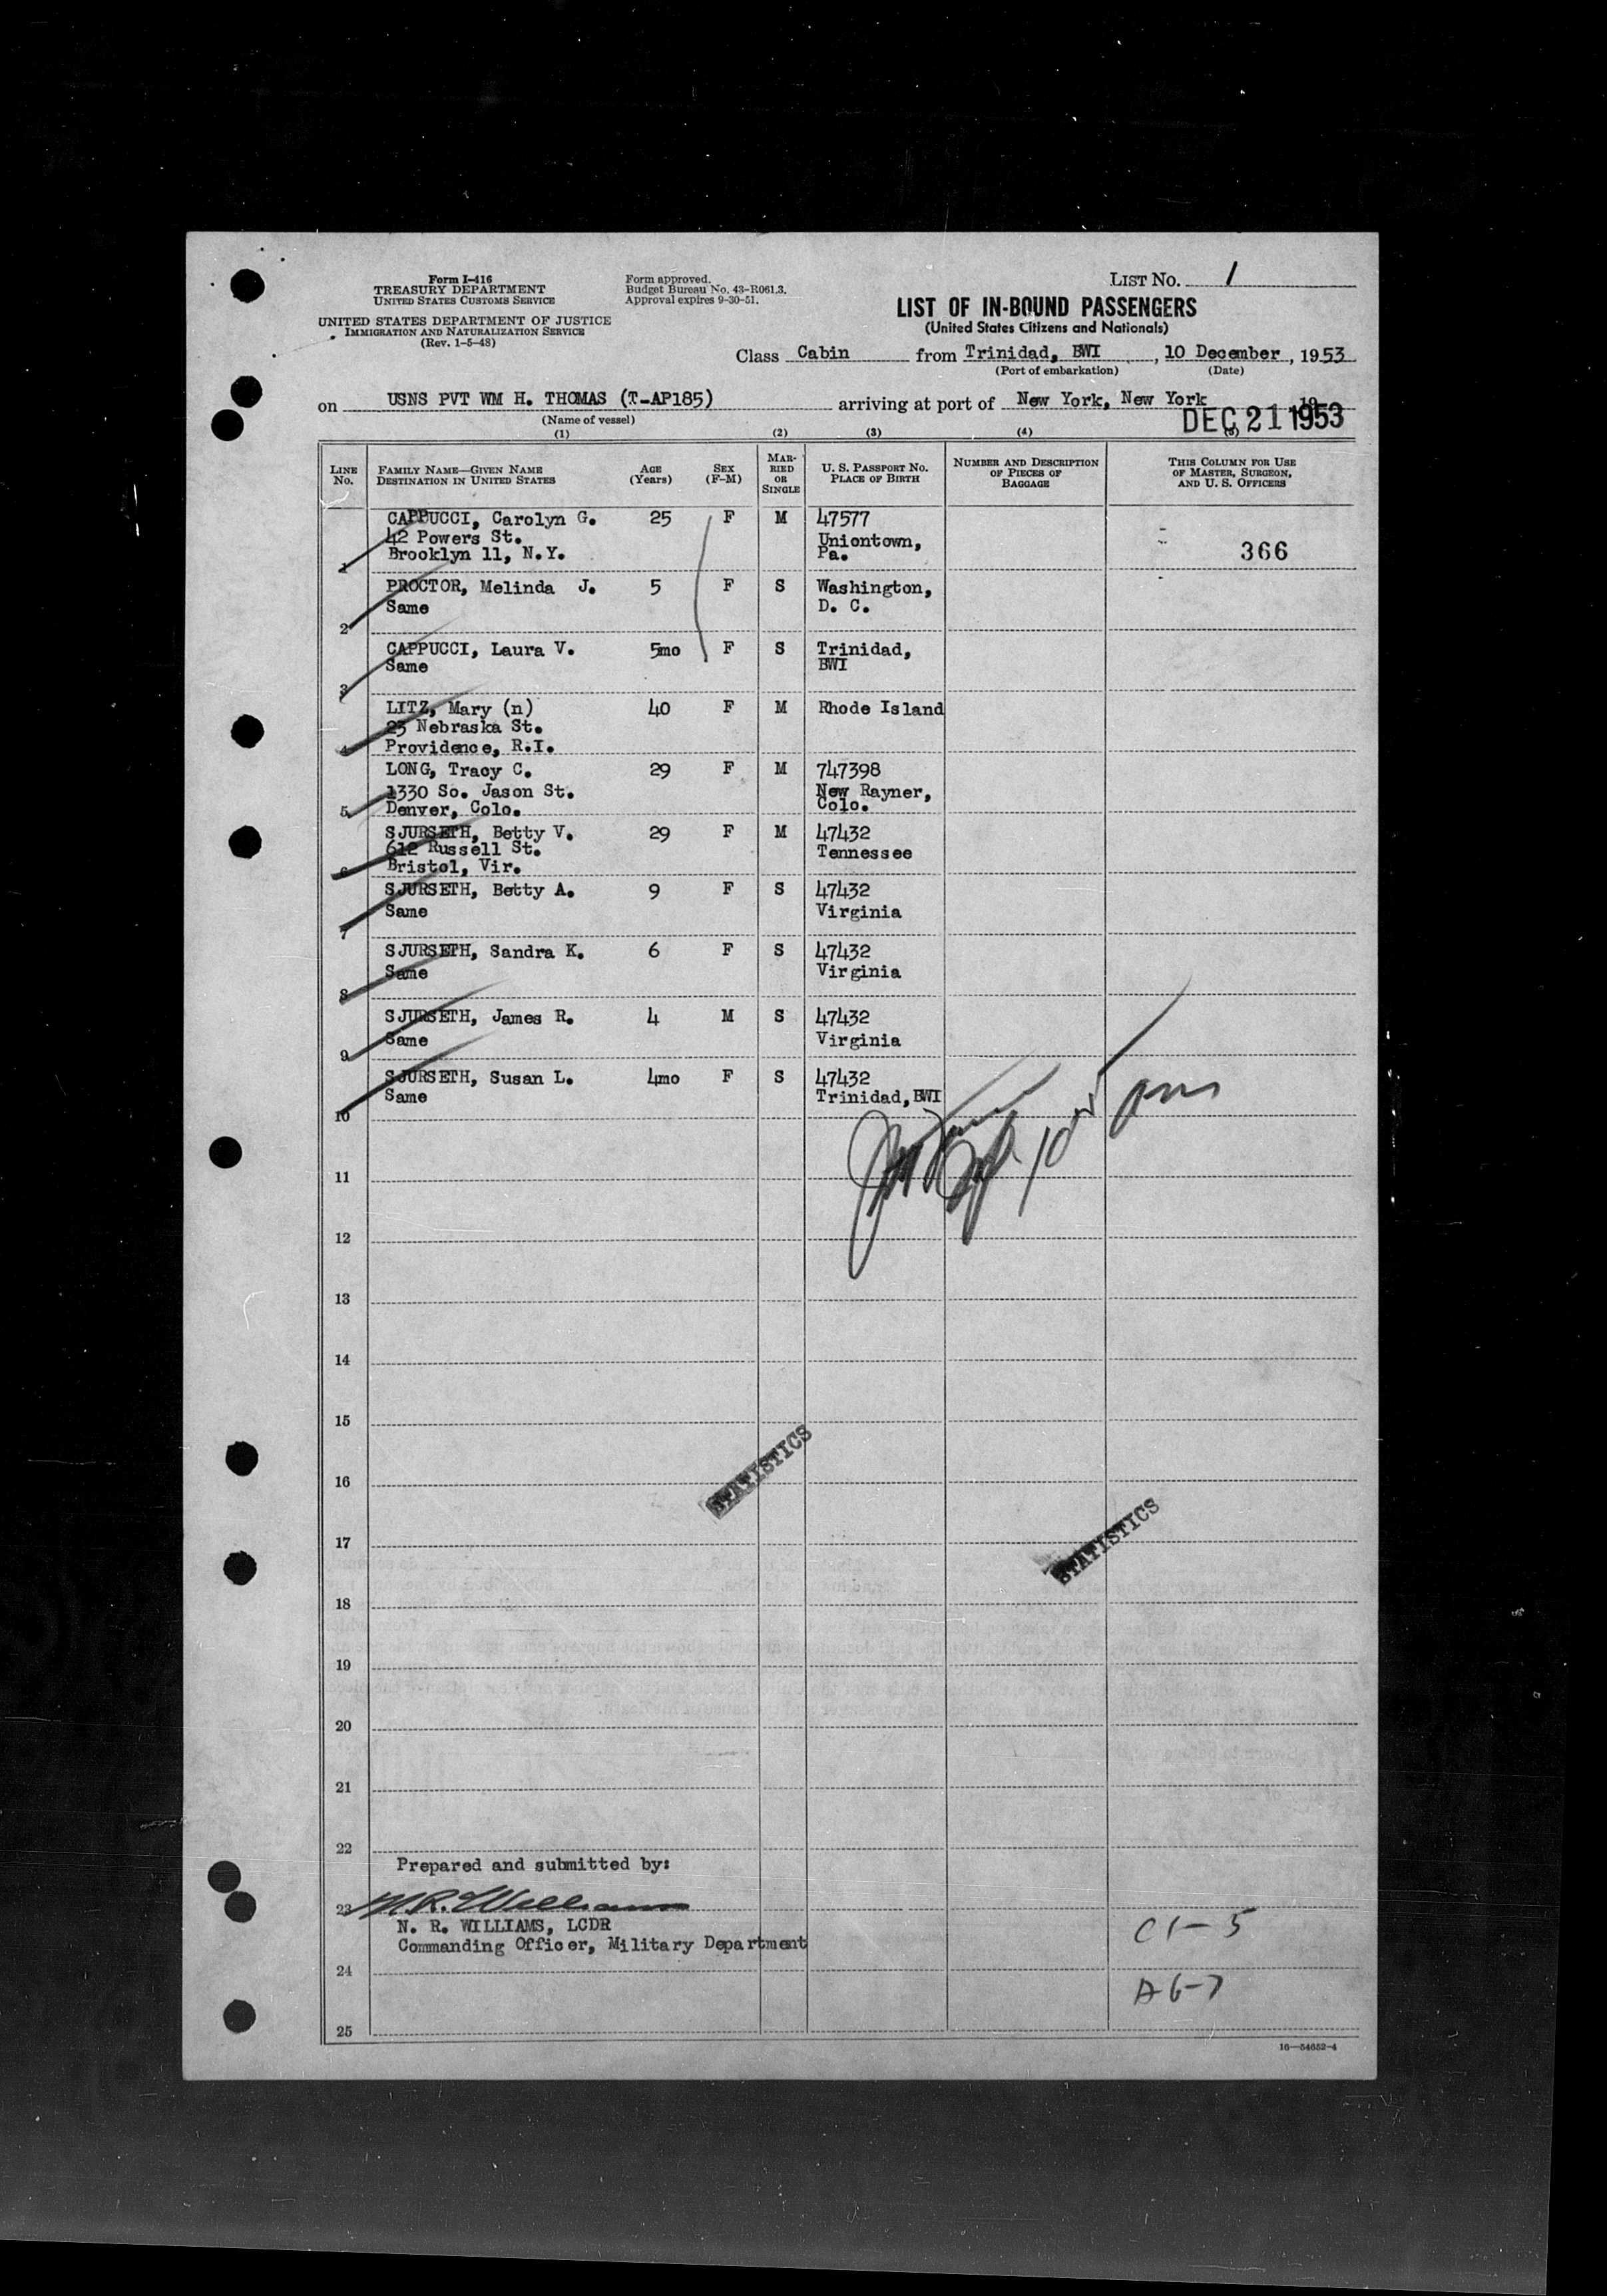 Form I-416
TREASURY DEPARTMENT
UNITED STATES CUSTOMS SERVICE
UNITED STATES DEPARTMENT OF JUSTICE
IMMIGRATION AND NATURALIZATION SERVICE
(Rev. 1-5-48)
Form approved.
Budget Bureau No. 43-R061.3.
Approval expires 9-30-51.
LIST No. 1
LIST OF IN-BOUND PASSENGERS
(United States Citizens and Nationals)
Class Cabin from Trinidad, BWI, 10 December, 1953
(Port of embarkation) (Date)
on USNS PVT WM H. THOMAS (T-AP185) arriving at port of New York, New York 19
DEC 21 1953
(Name of vessel)
(1) (2) (3) (4) (5)
LINE No.
FAMILY NAME—GIVEN NAME
DESTINATION IN UNITED STATES
AGE (Years)
SEX (F-M)
MARRIED OR SINGLE
U. S. PASSPORT NO.
PLACE OF BIRTH
NUMBER AND DESCRIPTION OF PIECES OF BAGGAGE
THIS COLUMN FOR USE OF MASTER, SURGEON, AND U. S. OFFICERS
CAPPUCCI, Carolyn G. 25 F M 47577
42 Powers St. Uniontown,
1 Brooklyn 11, N.Y. Pa. 366
PROCTOR, Melinda J. 5 F S Washington,
Same D. C.
2
CAPPUCCI, Laura V. 5mo F S Trinidad,
Same BWI
3
LITZ, Mary (n) 40 F M Rhode Island
23 Nebraska St.
4 Providence, R.I.
LONG, Tracy C. 29 F M 747398
1330 So. Jason St. New Rayner,
5 Denver, Colo. Colo.
SJURSETH, Betty V. 29 F M 47432
612 Russell St. Tennessee
6 Bristol, Vir.
SJURSETH, Betty A. 9 F S 47432
Same Virginia
7
SJURSETH, Sandra K. 6 F S 47432
Same Virginia
8
SJURSETH, James R. 4 M S 47432
Same Virginia
9
SJURSETH, Susan L. 4mo F S 47432
Same Trinidad, BWI
10
11
12
13
14
15
STATISTICS
16
STATISTICS
17
18
19
20
21
22
Prepared and submitted by:
23 N.R. Williams
N. R. WILLIAMS, LCDR
Commanding Officer, Military Department
C 1-5
24
A 6-7
25
16—54652-4